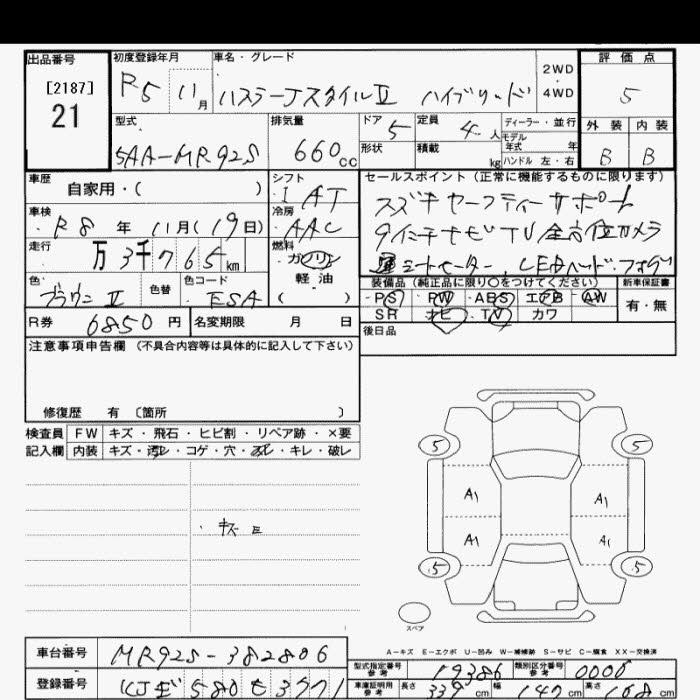 出品番号
[2187]
21
初度登録年月
R5 11月
車名・グレード
ハスラーJスタイルⅡ ハイブリッド
2WD
4WD
評価点
5
外装 内装
B B
型式
5AA-MR92S
排気量
660cc
ドア
5
定員
4人
形状
積載 kg
ディーラー・並行
モデル年式 年
ハンドル 左・右
車歴
自家用・( )
シフト
I AT
車検
R8 年 11月(19日)
冷房
AAC
走行
万3千765km
燃料
ガソリン
軽油
( )
色
ブラウンⅡ
色替
色コード
ESA
セールスポイント(正常に機能するものに限ります)
スズキセーフティーサポート
9インチナビTV全方位カメラ
運シートヒーター、LEDヘッド・フォグ
装備品(純正品に限り○をつけてください)
PS PW ABS エアB AW
SR ナビ TV カワ
新車保証書
有・無
後日品
R券 6850円
名変期限 月 日
注意事項申告欄 (不具合内容等は具体的に記入して下さい)
修復歴 有 〔箇所 〕
検査員記入欄
FW キズ・飛石・ヒビ割・リペア跡・×要
内装 キズ・汚レ・コゲ・穴・スレ・キレ・破レ
・キズ E
5 5
A1 A1
A1 A1
5 5
スペア
A-キズ E-エクボ U-凹み W-補修跡 S-サビ C-腐食 XX-交換済
車台番号
MR92S-382806
登録番号
580 3771
型式指定番号 参考
19386
類別区分番号 参考
0006
車庫証明用 参考
長さ 339cm 幅 147cm 高さ 168cm